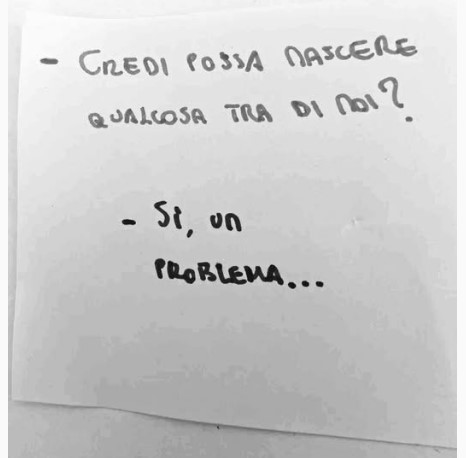 - CREDI POSSA NASCERE
QUALCOSA TRA DI NOI?
- Sì, UN
PROBLEMA...